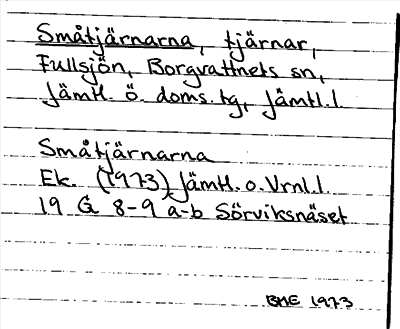 Småtjärnarna, tjärnar,
Fullsjön, Borgvattnets sn,
Jämtl. ö. doms. tg, Jämtl. l.
Småtjärnarna
Ek. (1973) Jämtl. o. Vrnl. l.
19 G 8-9 a-b Sörviksnäset
BME 1973